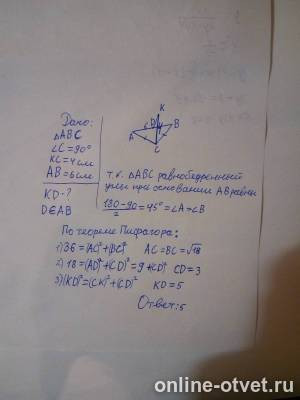 Дано:
△ABC
∠C=90°
KC=4см
AB=6см
KD-?
D∈AB
K
D
B
A
C
т.к. △ABC равнобедренный
углы при основании AB равны
180-90/2=45°=∠A=∠B
По теореме Пифагора:
1) 36=(AC)²+(BC)² AC=BC=√18
2) 18=(AD)²+(CD)²=9+(CD)² CD=3
3) (KD)²=(CK)²+(CD)² KD=5
Ответ:5
online-otvet.ru